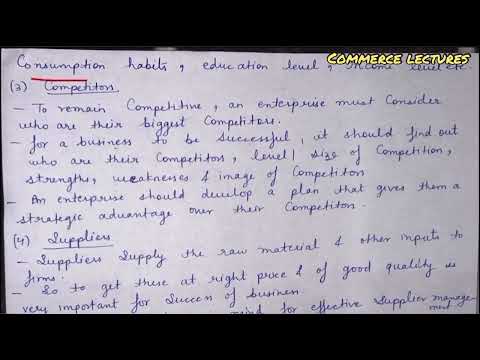 Commerce Lectures
Consumption habits, education level, income level etc
(3) Competitors
- To remain Competitive, an enterprise must Consider
who are their biggest Competitors.
- For a business to be successful, it should find out
who are their Competitors, level, size of Competition,
strengths, weaknesses & image of Competitors
- An enterprise should develop a plan that gives them a
strategic advantage over their Competitors.
(4) Suppliers
- Suppliers Supply the raw material & other inputs to
firms.
- So to get these at right price & of good quality is
very important for Success of business.
mind for effective Supplier management